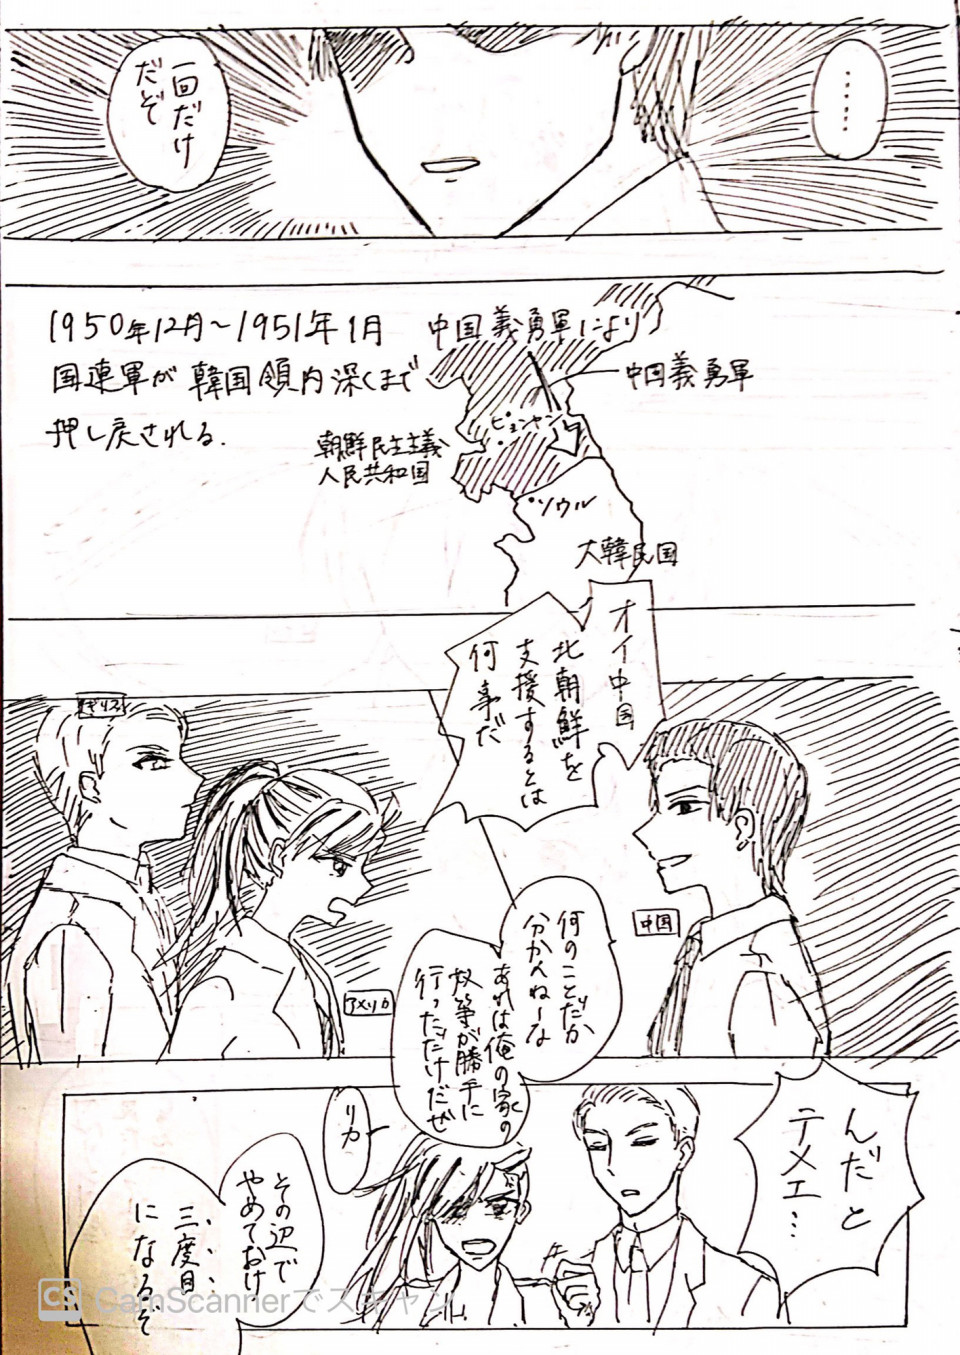 ……
一回だけ
だぞ
1950年12月～1951年1月 中国義勇軍により
国連軍が韓国領内深くまで
押し戻される.
中国義勇軍
ピョンヤン
朝鮮民主主義
人民共和国
ソウル
大韓民国
オイ中国
北朝鮮を
支援するとは
何事だ
イギリス
アメリカ
中国
何のことだか
分かんねーな
あれは俺の家の
奴等が勝手に
行っただけだぜ
んだと
テメエ…
リカー
その辺で
やめておけ
三度目
になるぞ
CS CamScannerでスキャン